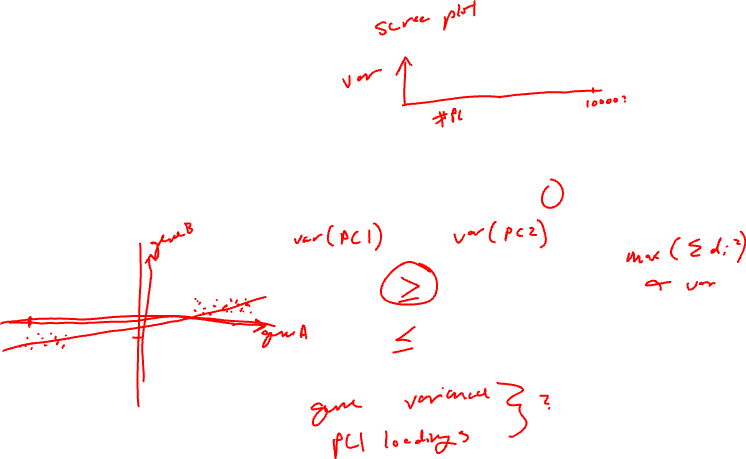 scree plot
var
#PC
10000?
0
gene B
var(PC1)
var(PC2)
max(Σdᵢ²)
≥
var
gene A
≤
gene variance
PC1 loadings
?